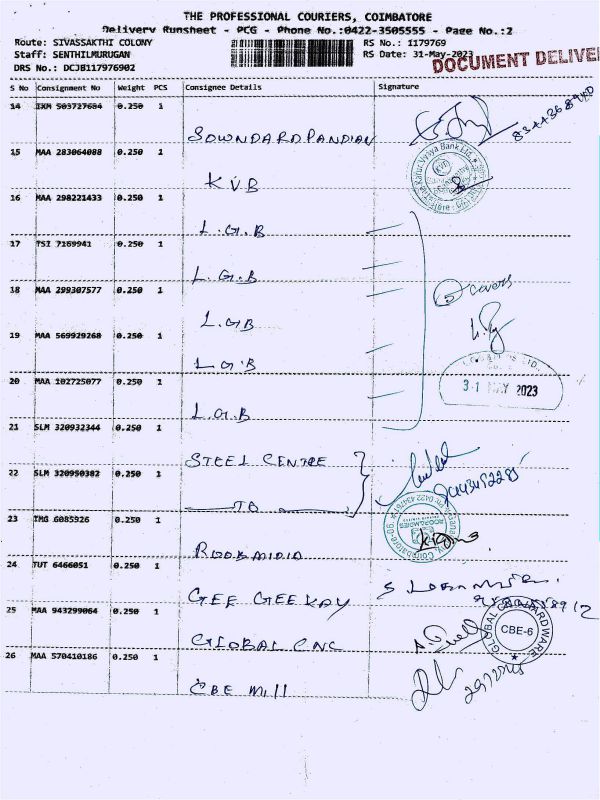 THE PROFESSIONAL COURIERS, COIMBATORE
Delivery Runsheet - PCG - Phone No.:0422-3505555 - Page No.:2
Route: SIVASSAKTHI COLONY
Staff: SENTHILMURUGAN
DRS No.: DCJB117976902
RS No.: 1179769
RS Date: 31-May-2023
DOCUMENT DELIVER
S No Consignment No Weight PCS Consignee Details Signature
14 IXM 503727684 0.250 1
SOWNDARDPANDIAN
15 MAA 283064088 0.250 1
KVB
16 MAA 298221433 0.250 1
L.G.B
17 TSI 7169941 0.250 1
L.G.B
18 MAA 299307577 0.250 1
L.G.B
5 covers
19 MAA 569929268 0.250 1
L.G.B
20 MAA 102725077 0.250 1
L.G.B
31 MAY 2023
21 SLM 320932344 0.250 1
STEEL CENTRE
22 SLM 320950382 0.250 1
TO
23 TMG 6085926 0.250 1
24 TUT 6466051 0.250 1
GEE GEE KAY
25 MAA 943299064 0.250 1
GLOBAL CNC
GLOBAL CNC HARDWARE
CBE-6
26 MAA 570410186 0.250 1
CBE Mill